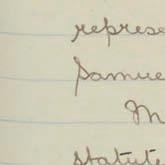 represe
Samue
M
statute